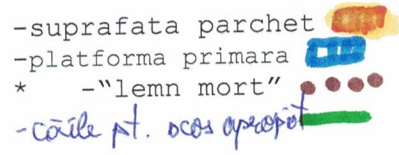 -suprafata parchet
-platforma primara
* -"lemn mort"
-căile pt. scos apropiat